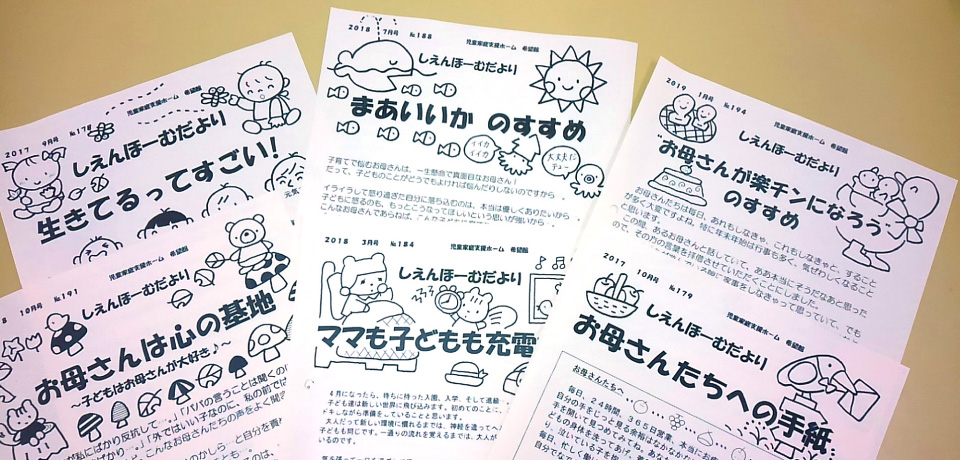 2017 9月号 №178
児童家庭支援ホーム 希望館
しえんほーむだより
生きてるってすごい!
2018 7月号 №188
児童家庭支援ホーム 希望館
しえんほーむだより
まあいいか のすすめ
イイカ
イイカ
大丈夫だ
デュー
子育てで悩むお母さんは、一生懸命で真面目なお母さん!
だって、子どものことがどうでもよければ悩んだりしないのですから
イライラして怒り過ぎた自分に落ち込むのは、本当は優しくありたいから
子どもに怒るのも、もっとこうなってほしいという思いが強いから
こんなお母さんであらねば、
2019 1月号 №194
児童家庭支援ホーム 希望館
しえんほーむだより
"お母さんが楽チンになろう"
のすすめ
お母さんたちは毎日、あれもしなきゃ、これもしなきゃと、すること
が多く大変ですよね。特に年末年始は行事も多く、気ぜわしくなること
と思います。
この間、あるお母さんと話していて、ああ本当にそうだなあと思った
ので、その方の言葉を拝借させていただくことにしました。
家事をしなきゃって思っていて、でも
8 10月号 №191
児童家庭支援ホーム 希望館
しえんほーむだより
お母さんは心の基地
～子どもはお母さんが大好き♪～
私にばかり反抗して…。」「パパの言うことは聞くのに
ばかり…。」「外ではいい子なのに、私の前では
こんなお母さんたちの声をよく聞
のかしら…と自分を責
2018 3月号 №184
児童家庭支援ホーム 希望館
しえんほーむだより
ママも子どもも充電
4月になったら、待ちに待った入園、入学、そして進級…
子ども達は新しい世界に飛び込みます。初めてのことに、
ドキしながら準備をしていることと思います。
大人だって新しい環境に慣れるまでは、神経を遣ってヘ
子どもも同じです。一通りの流れを覚えるまでは、大人が
いるのです。
2017 10月号 №179
児童家庭支援ホーム 希望館
しえんほーむだより
お母さんたちへの手紙
お母さんたちへ
毎日、24時間、365日営業、本当にお
自分の手をじっと見る余裕はなかなか
手を開いて見つめてみてね。
どもの身体を洗ってあげ、
り、泣いている子を抱
毎日、忙しく働い
自分でなで